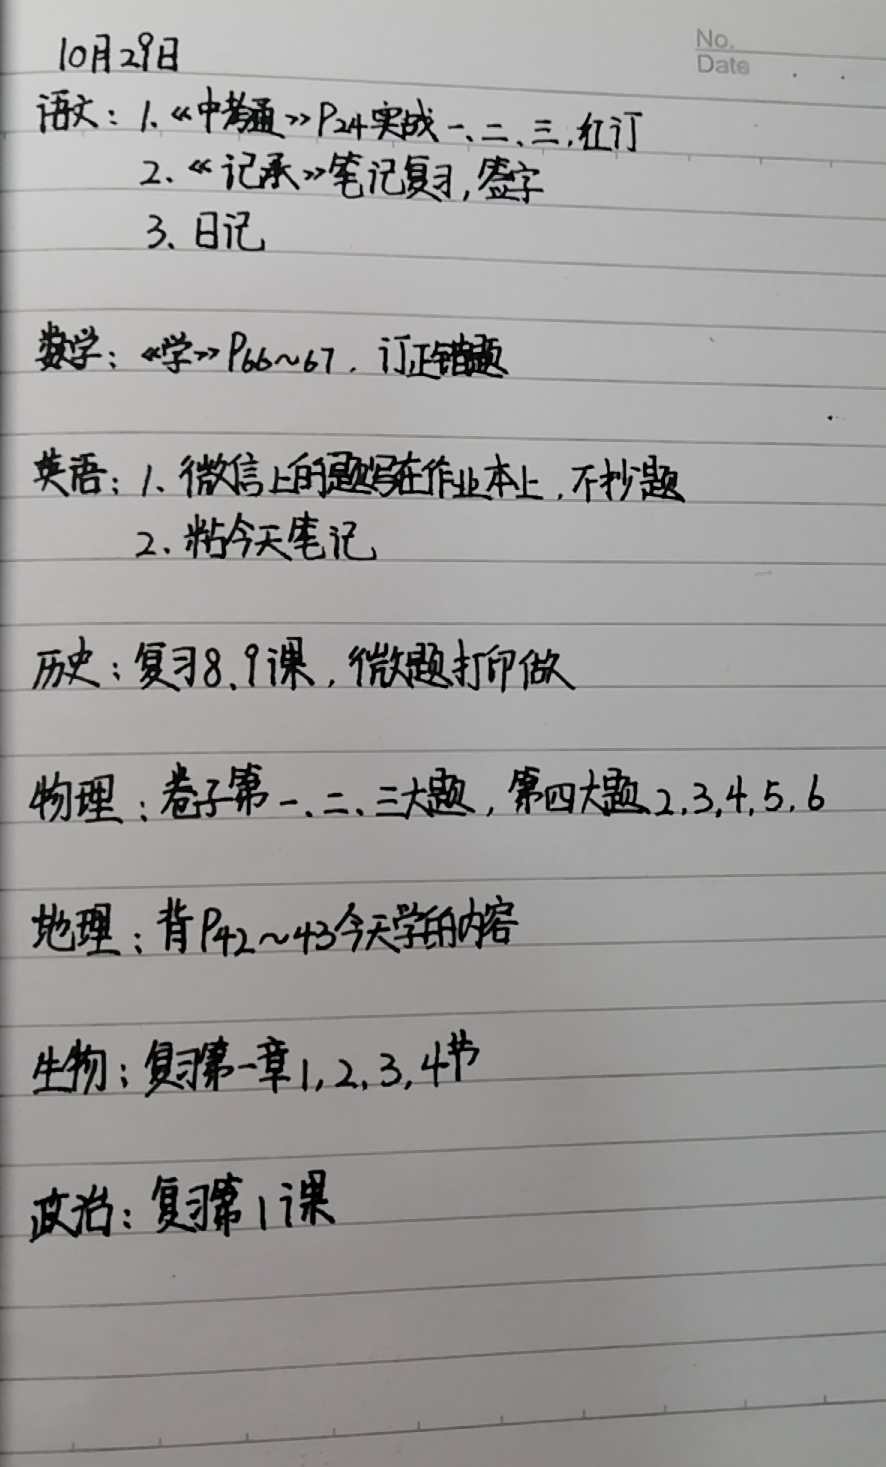 No.
Date
10月29日
语文：1、《中考通》P24实战一、二、三，红订
2、《记承》笔记复习，签字
3、日记
数学：《学》P66～67，订正错题
英语：1、微信上的题写在作业本上，不抄题
2、粘今天笔记
历史：复习8、9课，微题打印做
物理：卷子第一、二、三大题，第四大题2,3,4,5,6
地理：背P42～43今天学的内容
生物：复习第一章1,2,3,4节
政治：复习第1课